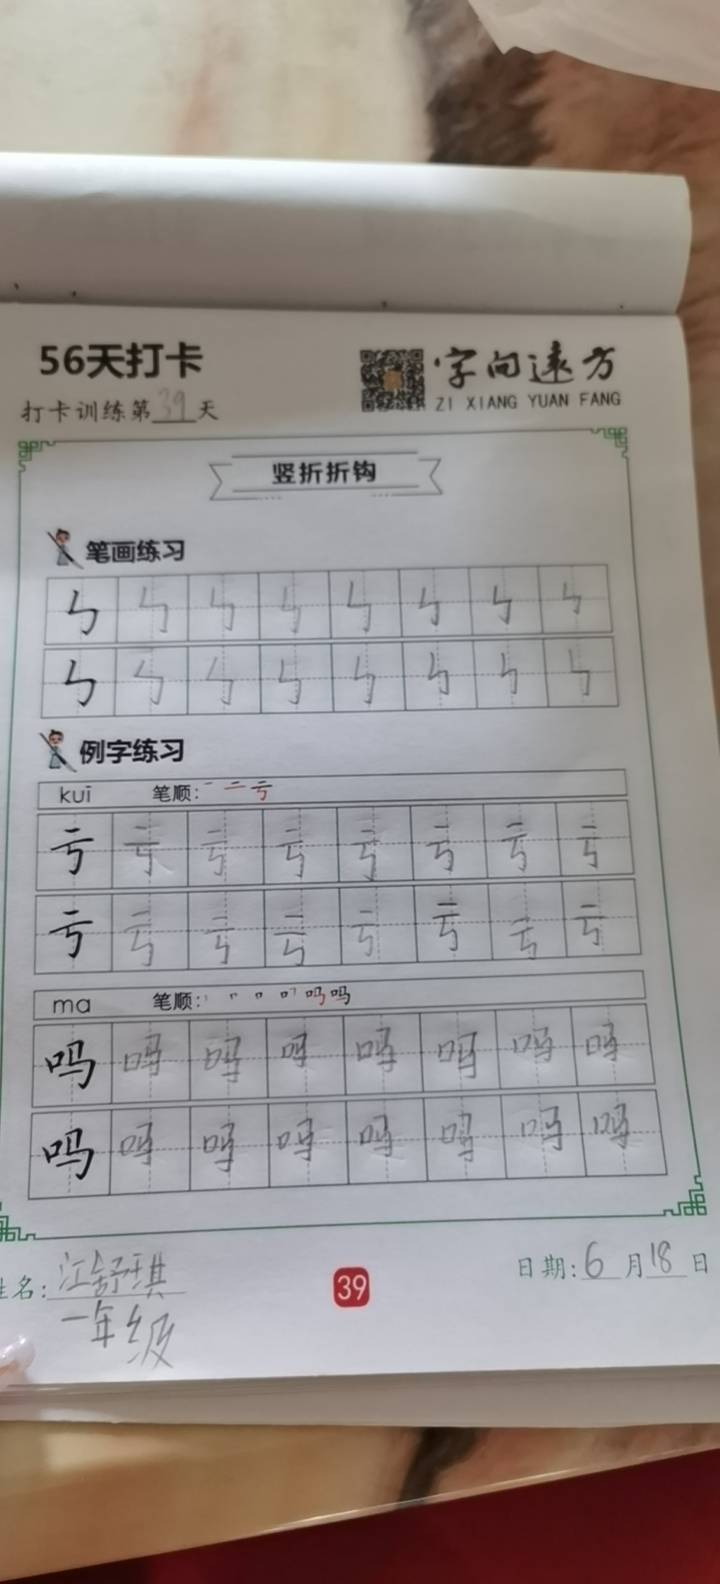 56天打卡
字向远方
打卡训练第39天
ZI XIANG YUAN FANG
竖折折钩
笔画练习
ㄣ ㄣ ㄣ ㄣ ㄣ ㄣ ㄣ ㄣ
ㄣ ㄣ ㄣ ㄣ ㄣ ㄣ ㄣ ㄣ
例字练习
kuī 笔顺: 一 二 亏
亏 亏 亏 亏 亏 亏 亏 亏
亏 亏 亏 亏 亏 亏 亏 亏
ma 笔顺: 吗 吗
吗 吗 吗 吗 吗 吗 吗 吗
吗 吗 吗 吗 吗 吗 吗 吗
姓名: 江舒琪
39
日期: 6 月 18 日
一年级